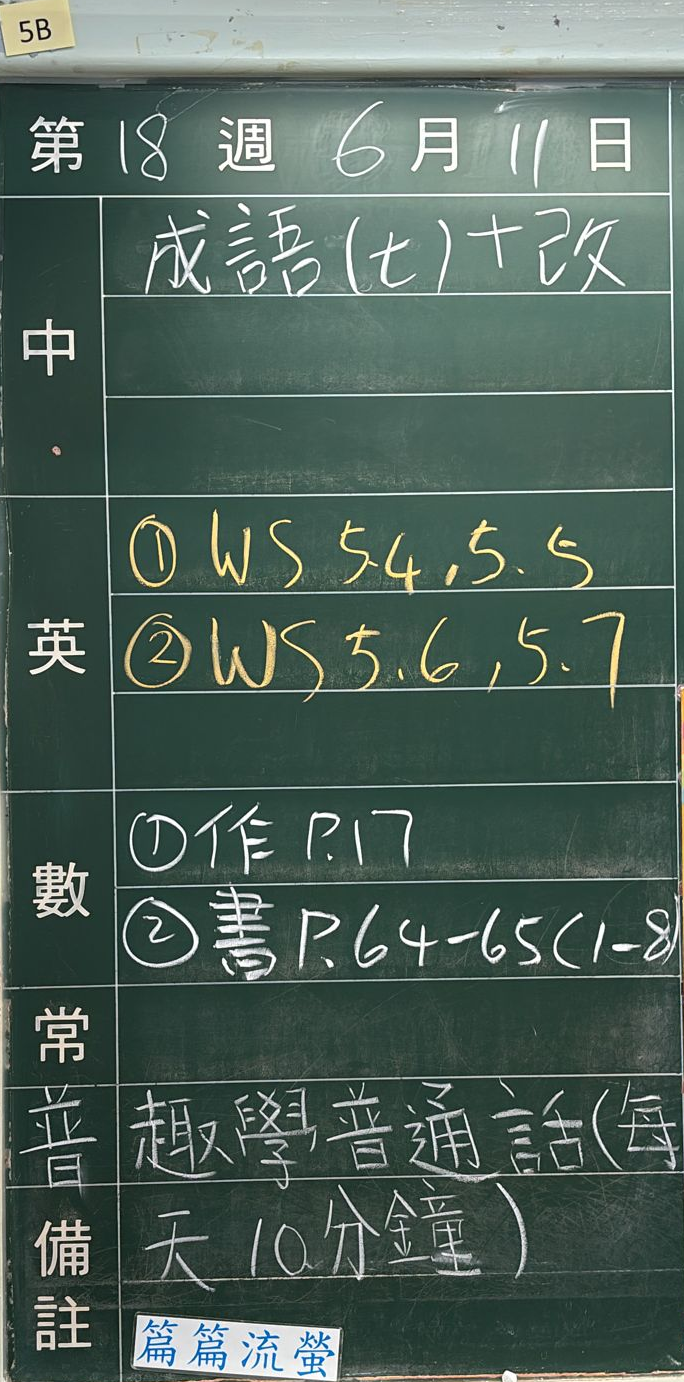 5B
第 18 週 6 月 11 日
中
成語(七)+改
英
① WS 5.4, 5.5
② WS 5.6, 5.7
數
① 作 P.17
② 書 P.64-65(1-8)
常
普
趣學普通話(每
備註
天10分鐘)
篇篇流螢